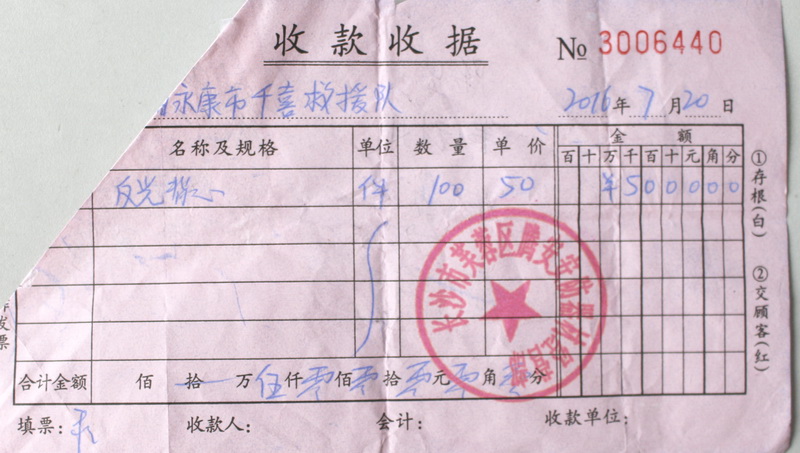 收款收据 № 3006440
永康市千喜救援队 2016年7月20日
名称及规格 单位 数量 单价 金额
百十万千百十元角分
反光背心 件 100 50 ¥500000
①存根(白)
②交顾客(红)
长沙市芙蓉区腾安
发票
合计金额 佰 拾 万伍仟零佰零拾零元零角零分
填票: 收款人: 会计: 收款单位: